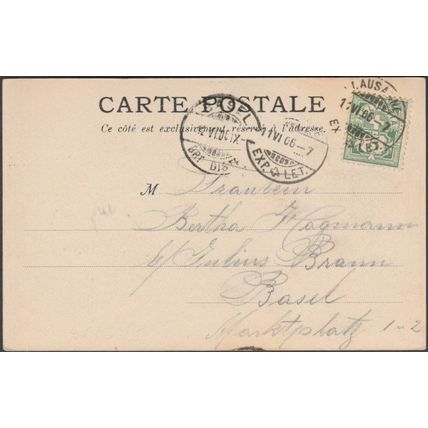 CARTE POSTALE
Ce côté est exclusivement réservé à l'adresse.
LAUSANNE
11 VI 06-7
EXP. LET.
11 VI 06-7
EXP. LET.
BASEL
BRF. DIS
M Fräulein
Bertha Hagmann
b/ Julius Braun
Basel
Marktplatz 1-2